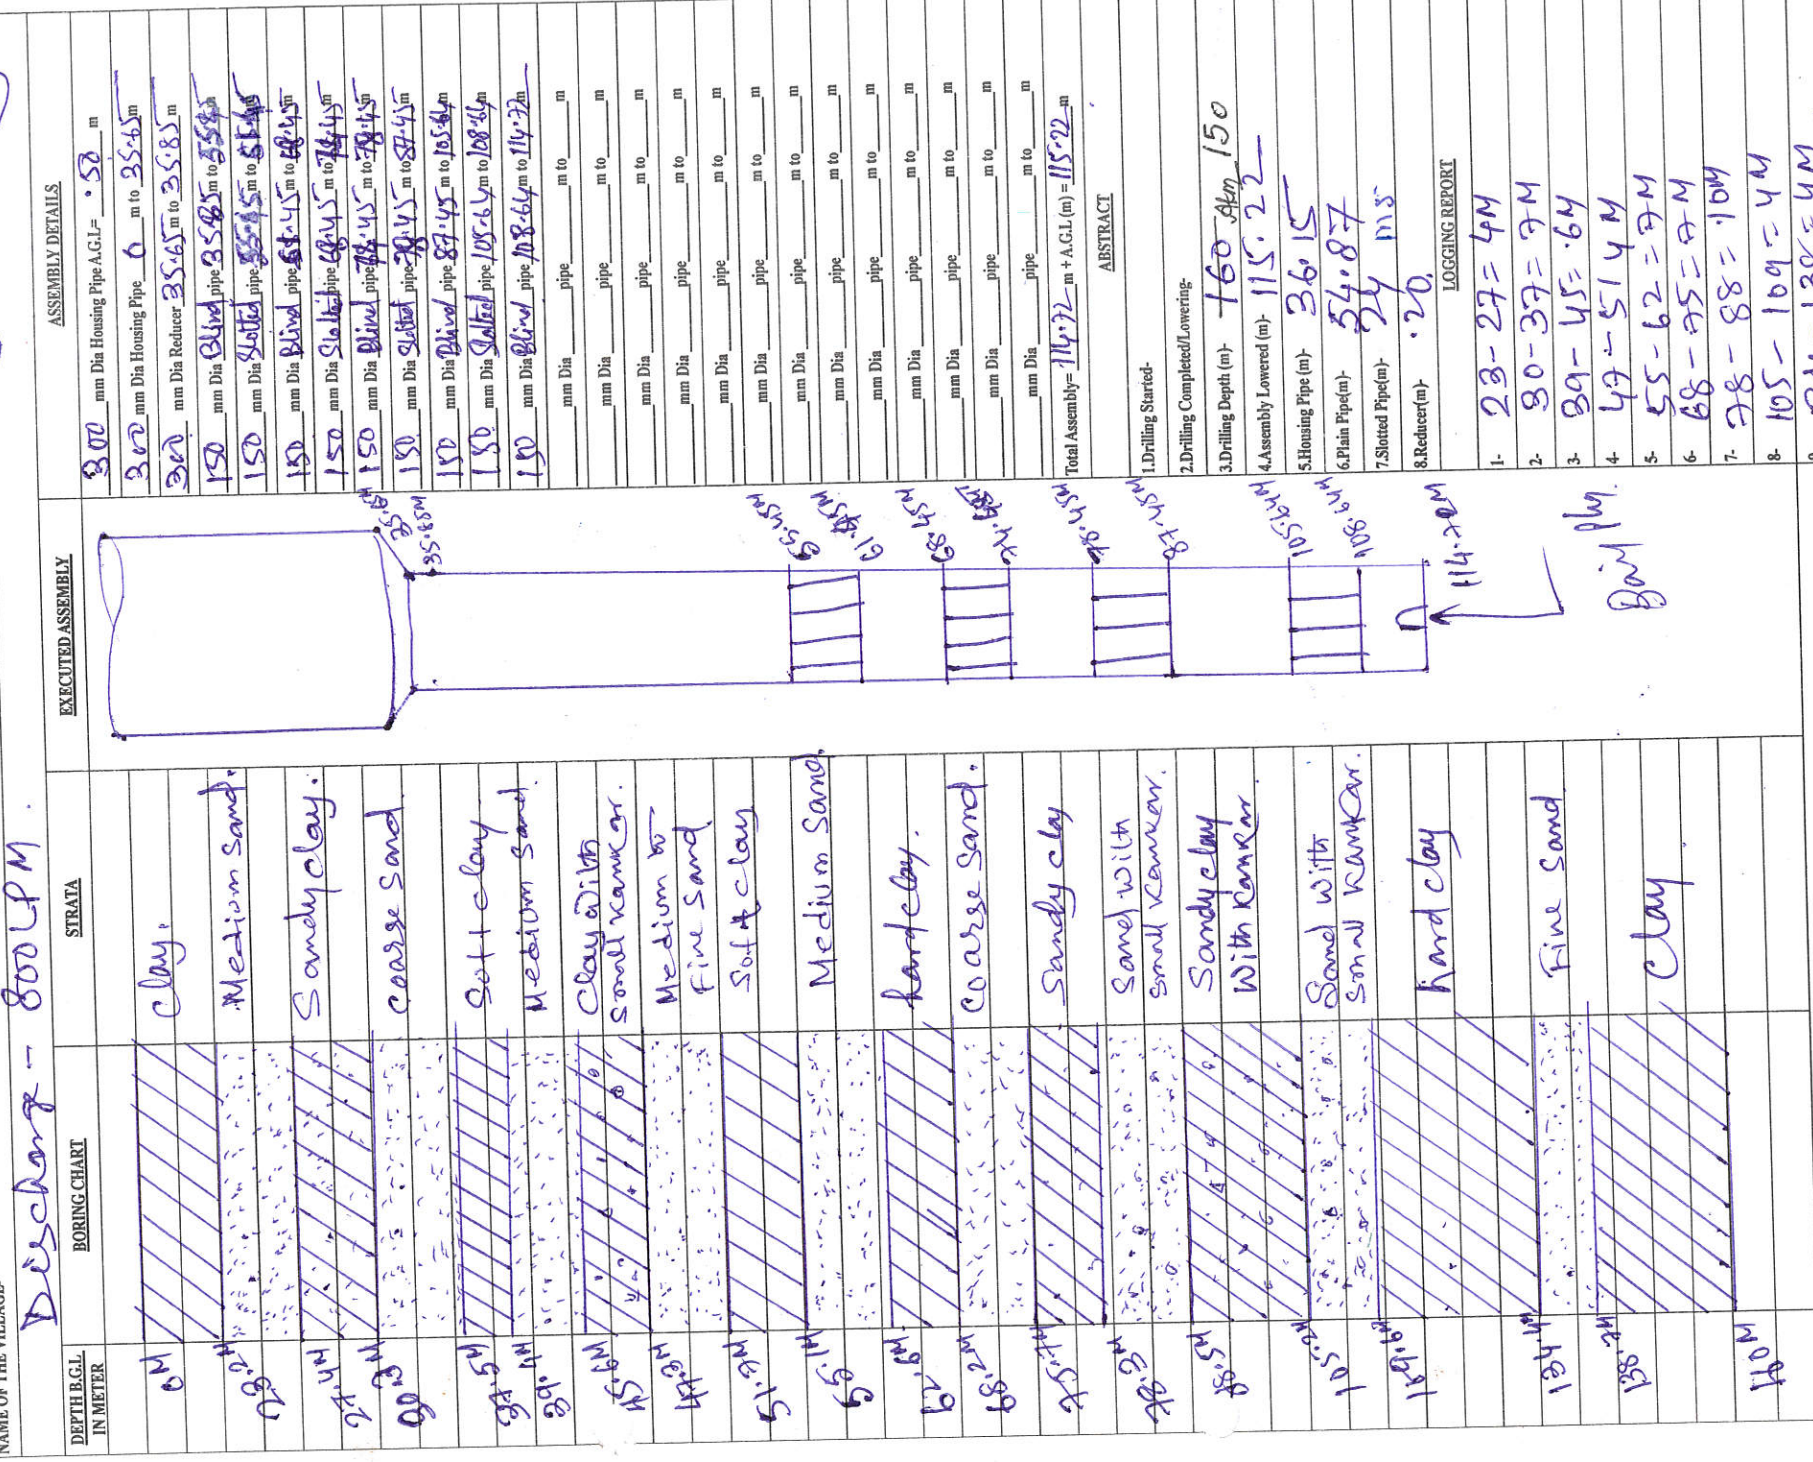 NAME OF THE VILLAGE-
Discharge - 800 LPM.
DEPTH B.G.L IN METER
BORING CHART
STRATA
EXECUTED ASSEMBLY
ASSEMBLY DETAILS
0M
Clay.
23.2M
Medium Sand.
27.4M
Sandy clay.
30.3M
Coarse Sand.
37.5M
Soft clay
39.4M
Medium Sand.
45.6M
Clay with
small kankar.
47.3M
Medium to
Fine Sand
51.7M
Soft clay
55.1M
Medium Sand.
62.6M
hard clay.
68.2M
Coarse Sand.
75.7M
Sandy clay
78.3M
Sand with
small kankar.
88.5M
Sandy clay
With Kankar
105.2M
Sand with
small kankar.
109.6M
hard clay
134.4M
Fine Sand
138.7M
Clay
35.65M
35.85M
55.45M
61.45M
68.45M
74.45M
78.45M
87.45M
105.64M
108.64M
114.72M
Bail Plug.
300 mm Dia Housing Pipe A.G.L= .50 m
300 mm Dia Housing Pipe 0 m to 35.65 m
300 mm Dia Reducer 35.65 m to 35.85 m
150 mm Dia Blind pipe 35.85 m to
150 mm Dia Slotted pipe 55.45 m to
150 mm Dia Blind pipe 61.45 m to 68.45 m
150 mm Dia Slotted pipe 68.45 m to 74.45 m
150 mm Dia Blind pipe 74.45 m to 78.45 m
150 mm Dia Slotted pipe 78.45 m to 87.45 m
150 mm Dia Blind pipe 87.45 m to 105.64 m
150 mm Dia Slotted pipe 105.64 m to 108.64 m
150 mm Dia Blind pipe 108.64 m to 114.72 m
mm Dia pipe m to m
mm Dia pipe m to m
mm Dia pipe m to m
mm Dia pipe m to m
mm Dia pipe m to m
mm Dia pipe m to m
mm Dia pipe m to m
mm Dia pipe m to m
mm Dia pipe m to m
mm Dia pipe m to m
mm Dia pipe m to m
mm Dia pipe m to m
mm Dia pipe m to m
Total Assembly= 114.72 m + A.G.L (m) = 115.22 m
ABSTRACT
1.Drilling Started-
2.Drilling Completed/Lowering-
3.Drilling Depth (m)- 160 150
4.Assembly Lowered (m)- 115.22
5.Housing Pipe (m)- 36.15
6.Plain Pipe(m)- 54.87
7.Slotted Pipe(m)- 24
8.Reducer(m)- .20
LOGGING REPORT
1- 23-27= 4M
2- 30-37= 7M
3- 39-45= 6M
4- 47-51 4M
5- 55-62=7M
6- 68-75=7M
7- 78-88=10M
8- 105-109=4M